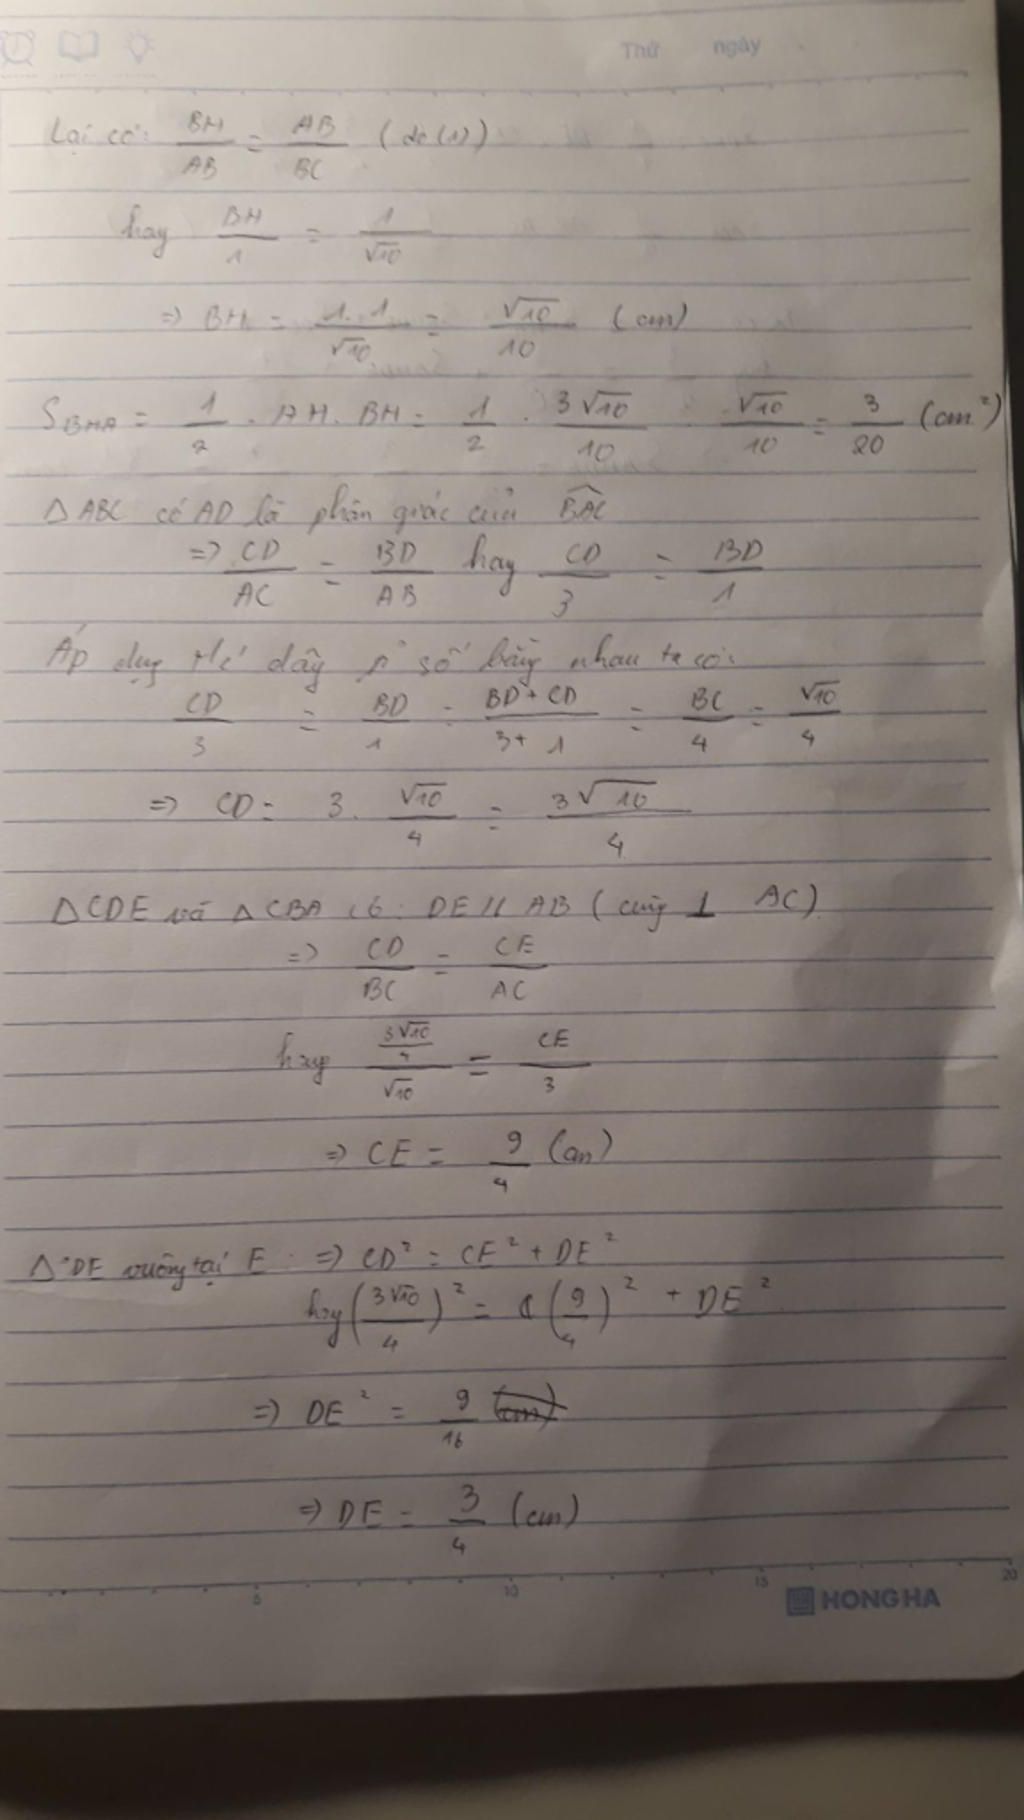 Thứ ngày
Lại có: BH/AB = AB/BC (do (1))
hay BH/1 = 1/√10
=> BH = 1.1/√10 = √10/10 (cm)
S_BHA = 1/2 . AH. BH = 1/2 . 3√10/10 . √10/10 = 3/20 (cm²)
Δ ABC có AD là phân giác của BAC
=> CD/AC = BD/AB hay CD/3 = BD/1
Áp dụng dãy số bằng nhau ta có:
CD/3 = BD/1 = BD+CD/3+1 = BC/4 = √10/4
=> CD = 3. √10/4 = 3√10/4
ΔCDE và ΔCBA có: DE // AB (cùng ⊥ AC)
=> CD/BC = CE/AC
hay (3√10/4)/√10 = CE/3
=> CE = 9/4 (cm)
Δ CDE vuông tại E => CD² = CE² + DE²
hay (3√10/4)² = (9/4)² + DE²
=> DE² = 9/16
=> DE = 3/4 (cm)
5 10 15 20
HONG HA